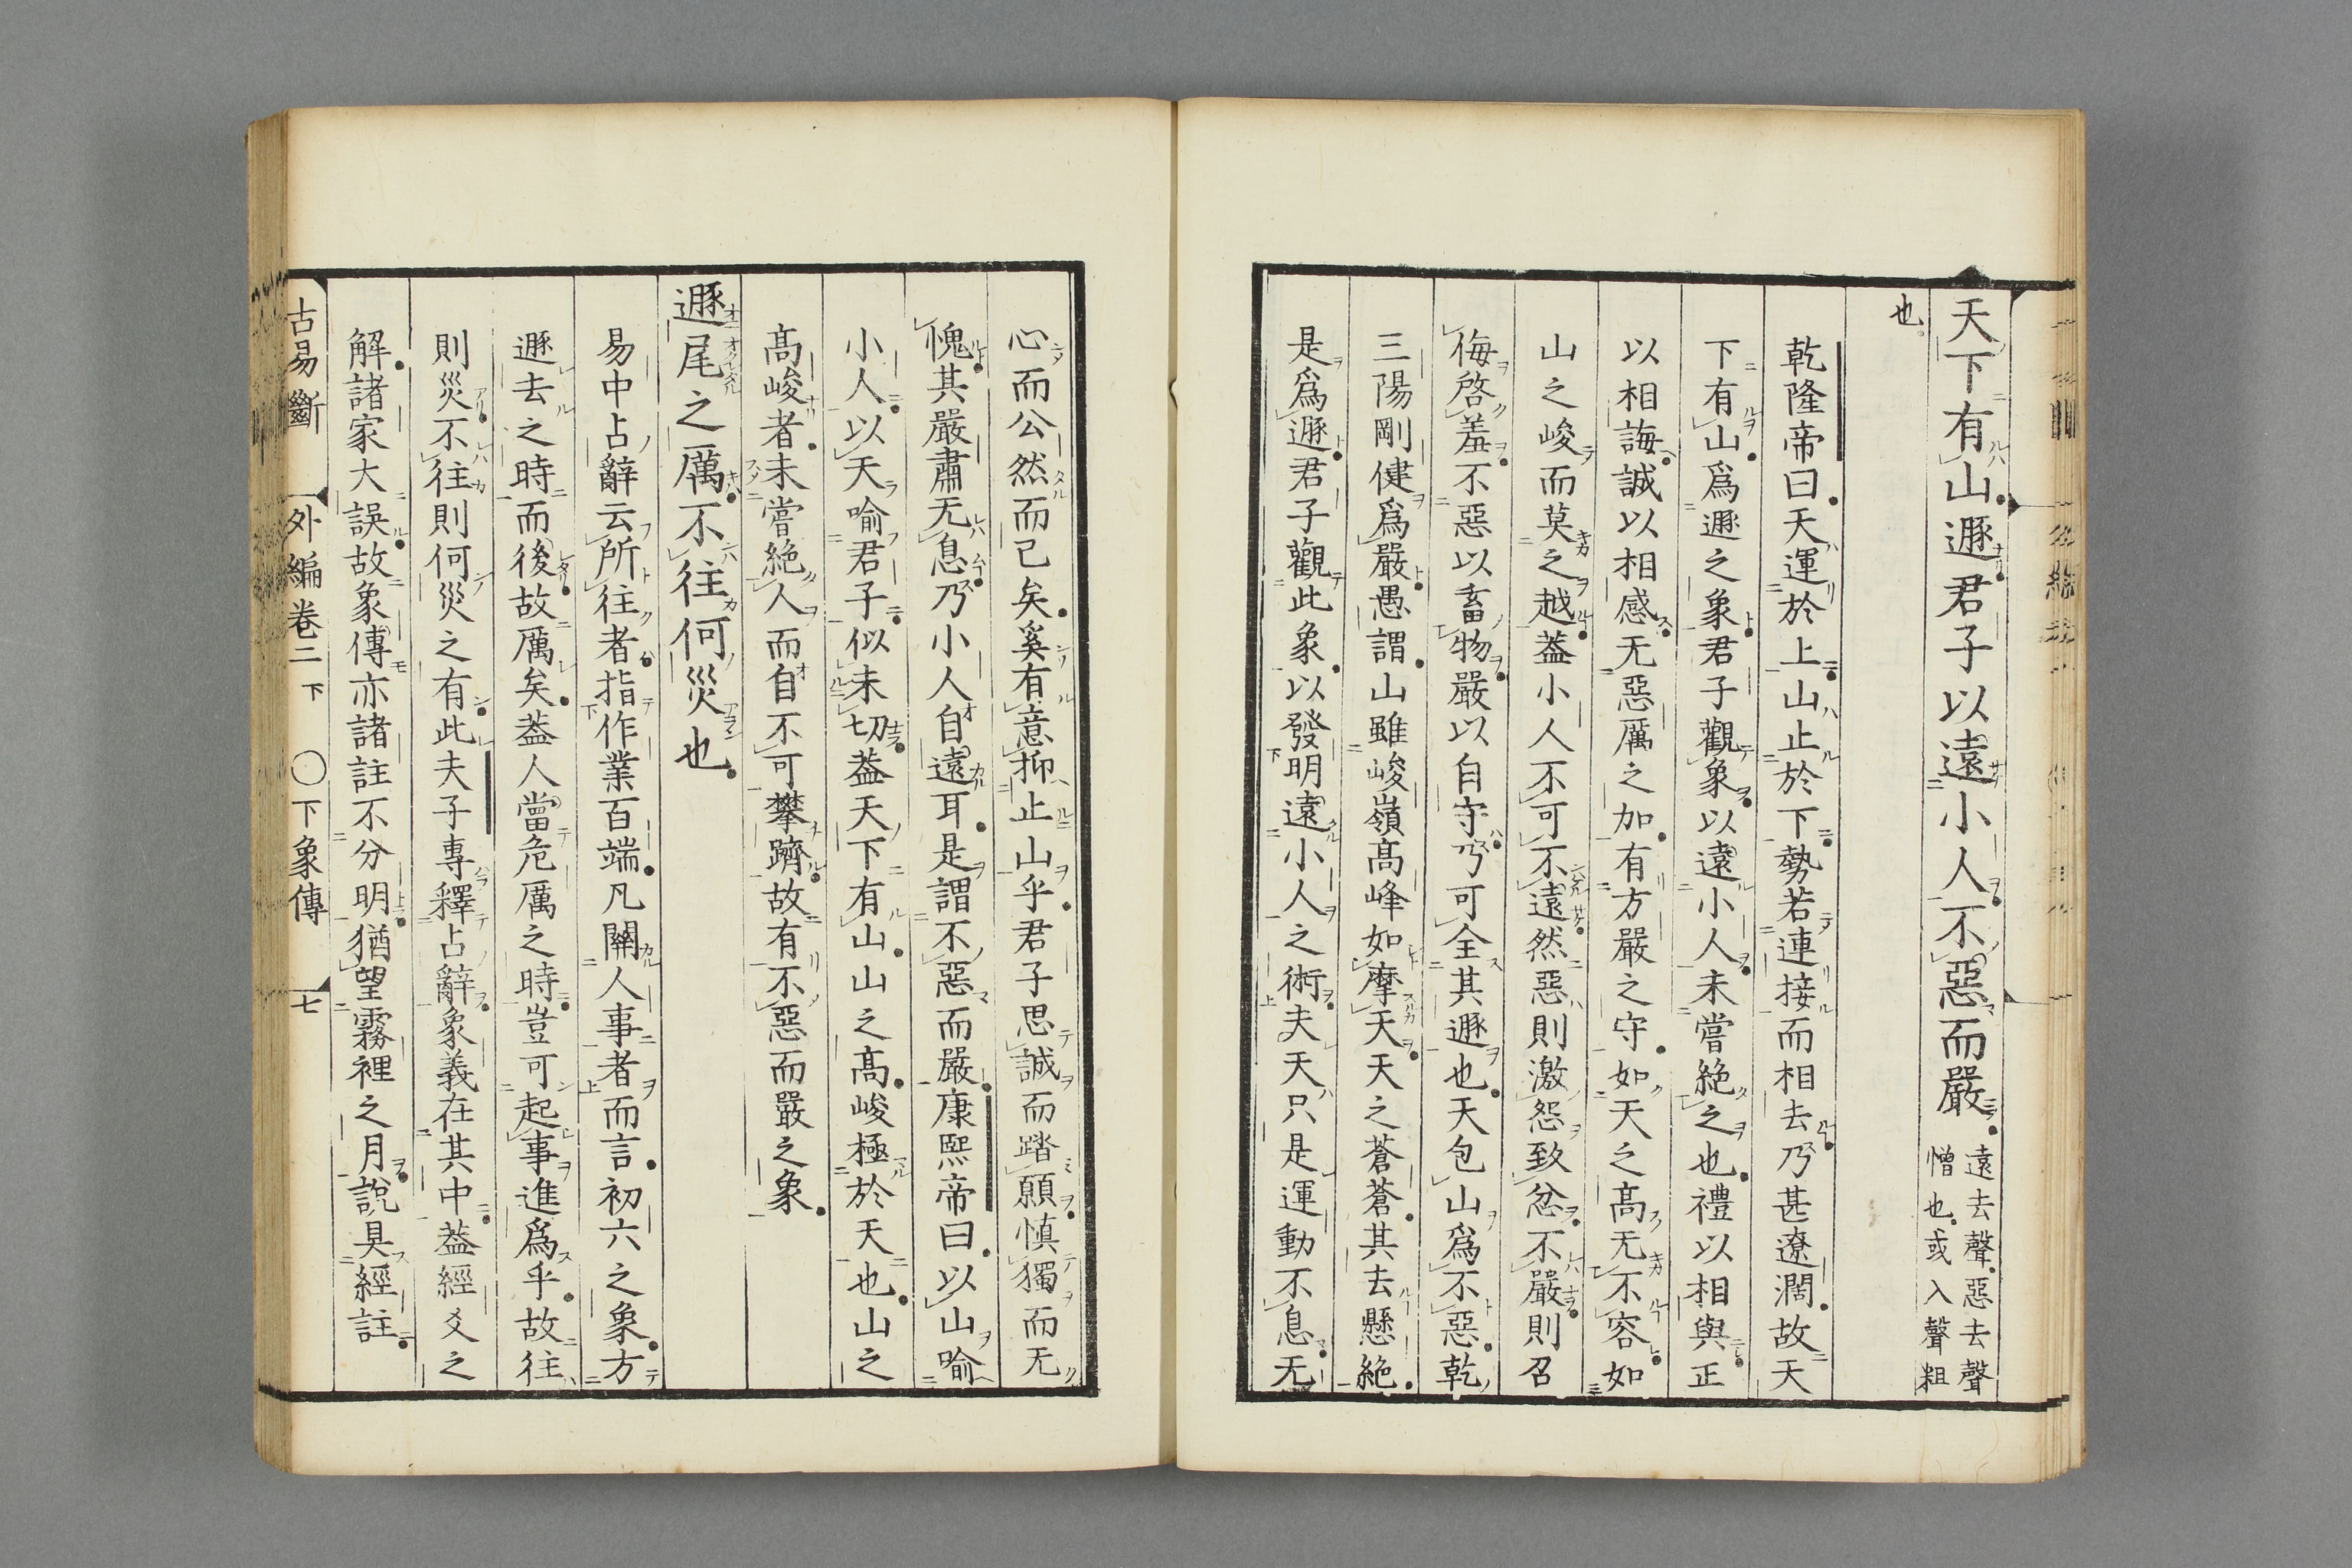 天下有山遯君子以遠小人不惡而嚴遠去聲惡去聲憎也或入聲粗
也
乾隆帝曰天運於上山止於下勢若連接而相去乃甚遼濶故天
下有山爲遯之象君子觀象以遠小人未嘗絶之也禮以相與正
以相誨誠以相感无惡厲之加有方嚴之守如天之高无不容如
山之峻而莫之越葢小人不可不遠然惡則激怨致忿不嚴則召
侮啓羞不惡以畜物嚴以自守乃可全其遯也天包山爲不惡乾
三陽剛健爲嚴愚謂山雖峻嶺高峰如摩天天之蒼蒼其去懸絶
是爲遯君子觀此象以發明遠小人之術夫天只是運動不息无
心而公然而已矣奚有意抑止山乎君子思誠而踏願慎獨而无
愧其嚴肅无息乃小人自遠耳是謂不惡而嚴康熙帝曰以山喻
小人以天喻君子似未切葢天下有山山之高峻極於天也山之
高峻者未嘗絶人而自不可攀躋故有不惡而嚴之象
遯尾之厲不往何災也
易中占辭云所往者指作業百端凡關人事者而言初六之象方
遯去之時而後故厲矣葢人當危厲之時豈可起事進爲乎故往
則災不往則何災之有此夫子專釋占辭象義在其中葢經爻之
解諸家大誤故象傳亦諸註不分明猶望霧裡之月說具經註
古易斷 外編卷二下 〇下象傳 七